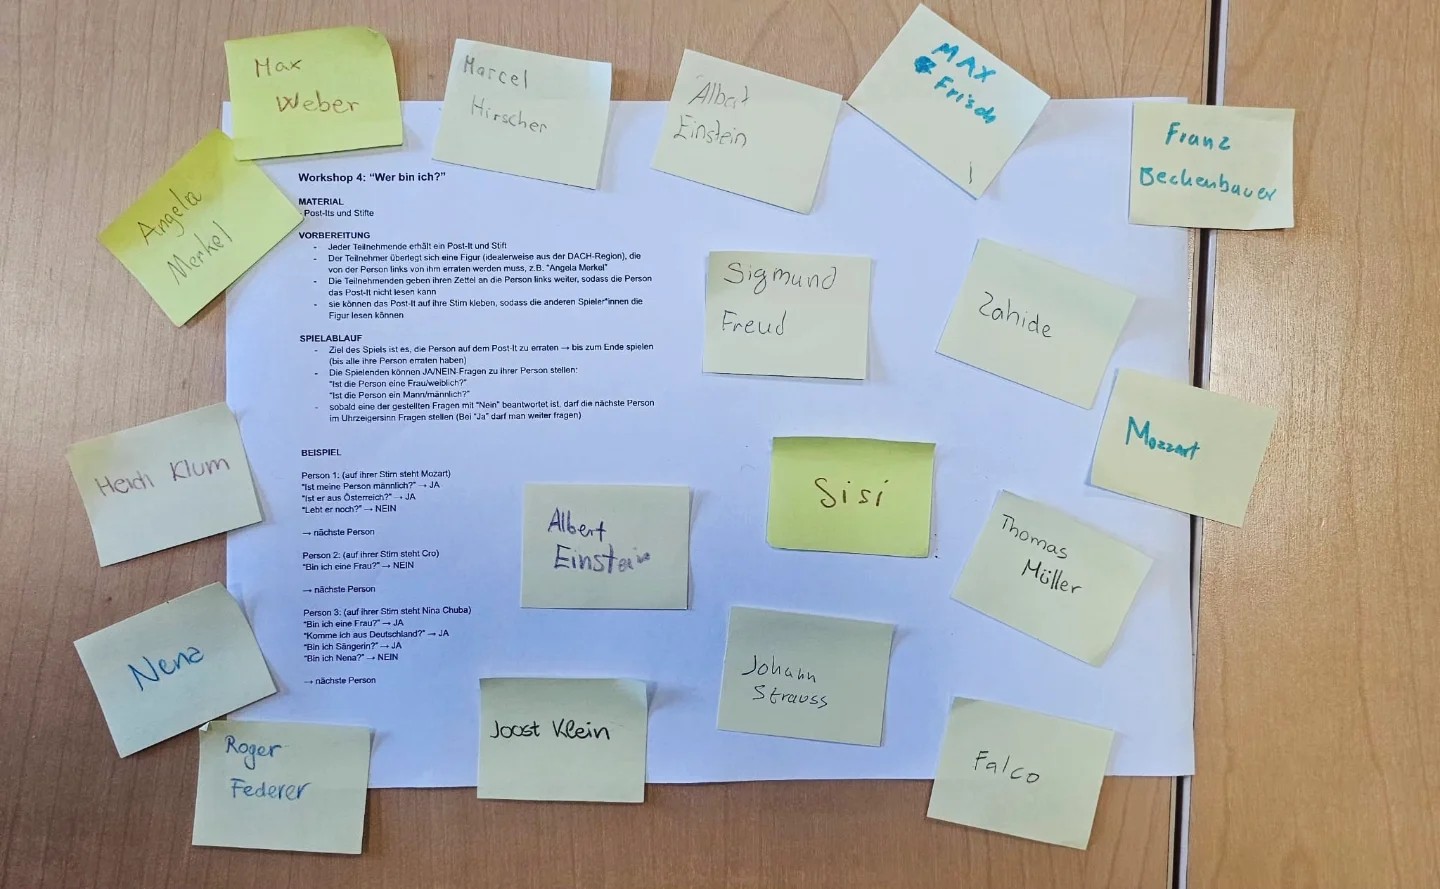 Max
Weber
Marcel
Hirscher
Albert
Einstein
MAX
Frisch
Franz
Beckenbauer
Angela
Merkel
Workshop 4: “Wer bin ich?”
MATERIAL
Post-Its und Stifte
VORBEREITUNG
- Jeder Teilnehmende erhält ein Post-It und Stift
- Der Teilnehmer überlegt sich eine Figur (idealerweise aus der DACH-Region), die
von der Person links von ihm erraten werden muss, z.B. “Angela Merkel”
- Die Teilnehmenden geben ihren Zettel an die Person links weiter, sodass die Person
das Post-It nicht lesen kann
- sie können das Post-It auf ihre Stirn kleben, sodass die anderen Spieler*innen die
Figur lesen können
SPIELABLAUF
- Ziel des Spiels ist es, die Person auf dem Post-It zu erraten → bis zum Ende spielen
(bis alle ihre Person erraten haben)
- Die Spielenden können JA/NEIN-Fragen zu ihrer Person stellen:
“Ist die Person eine Frau/weiblich?”
“Ist die Person ein Mann/männlich?”
- sobald eine der gestellten Fragen mit “Nein” beantwortet ist, darf die nächste Person
im Uhrzeigersinn Fragen stellen (Bei “Ja” darf man weiter fragen)
BEISPIEL
Person 1: (auf ihrer Stirn steht Mozart)
“Ist meine Person männlich?” → JA
“Ist er aus Österreich?” → JA
“Lebt er noch?” → NEIN
→ nächste Person
Person 2: (auf ihrer Stirn steht Cro)
“Bin ich eine Frau?” → NEIN
→ nächste Person
Person 3: (auf ihrer Stirn steht Nina Chuba)
“Bin ich eine Frau?” → JA
“Komme ich aus Deutschland?” → JA
“Bin ich Sängerin?” → JA
“Bin ich Nena?” → NEIN
→ nächste Person
Sigmund
Freud
Zahide
Mozzart
Heidi Klum
Sisi
Albert
Einstein
Thomas
Müller
Nena
Johann
Strauss
Roger
Federer
Joost Klein
Falco